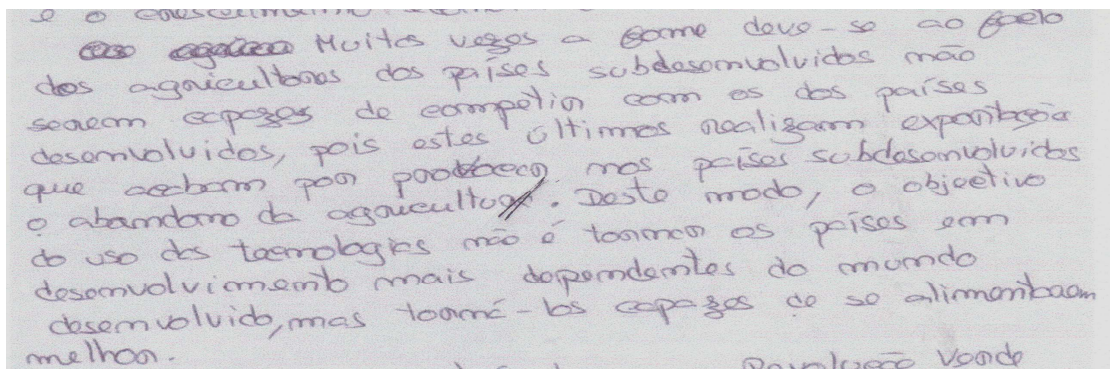 e o crescimento
Muitas vezes a fome deve-se ao facto
dos agricultores dos países subdesenvolvidos não
serem capazes de competir com os dos países
desenvolvidos, pois estes últimos realizam exportação
que acabam por provocar nos países subdesenvolvidos
o abandono da agricultura. Deste modo, o objectivo
do uso das tecnologias não é tornar os países em
desenvolvimento mais dependentes do mundo
desenvolvido, mas torná-los capazes de se alimentarem
melhor.
Revolução Verde